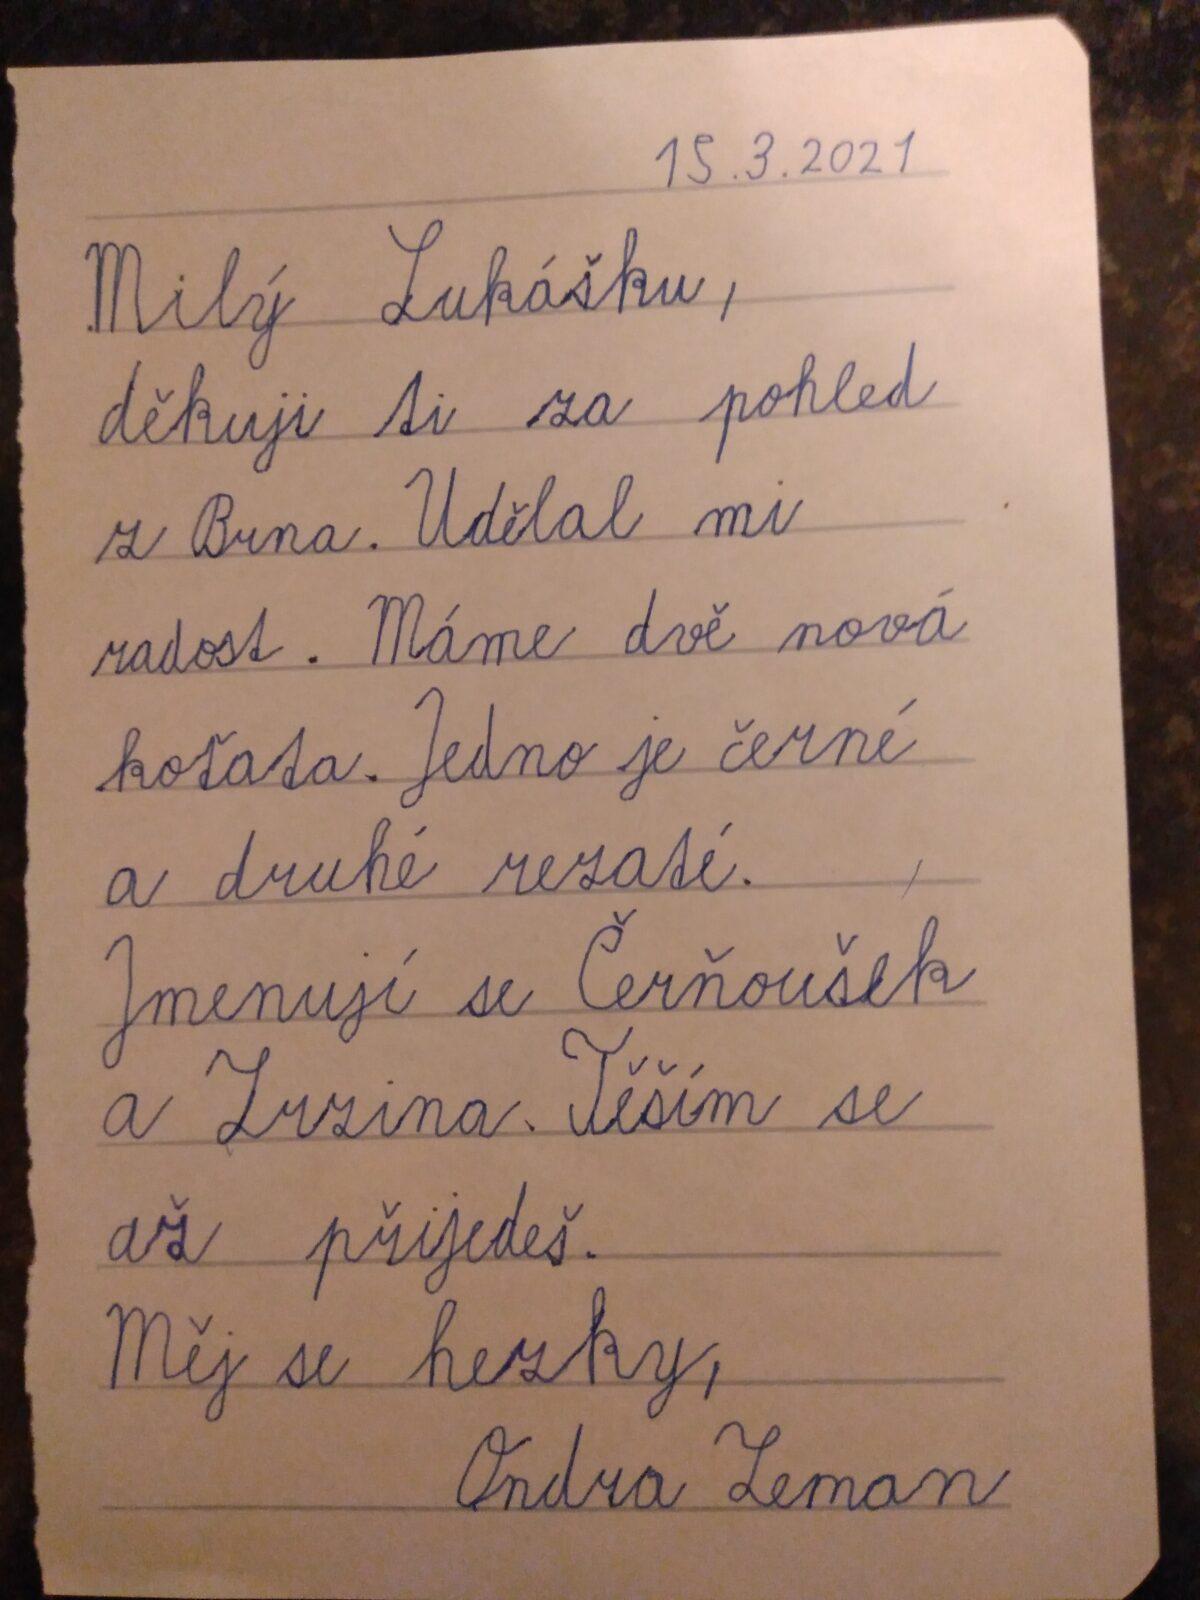 15.3.2021
Milý Lukášku,
děkuji ti za pohled
z Brna. Udělal mi
radost. Máme dvě nová
koťata. Jedno je černé
a druhé rezaté.
Jmenují se Čerňoušek
a Zrzina. Těším se
až přijedeš.
Měj se hezky,
Ondra Zeman